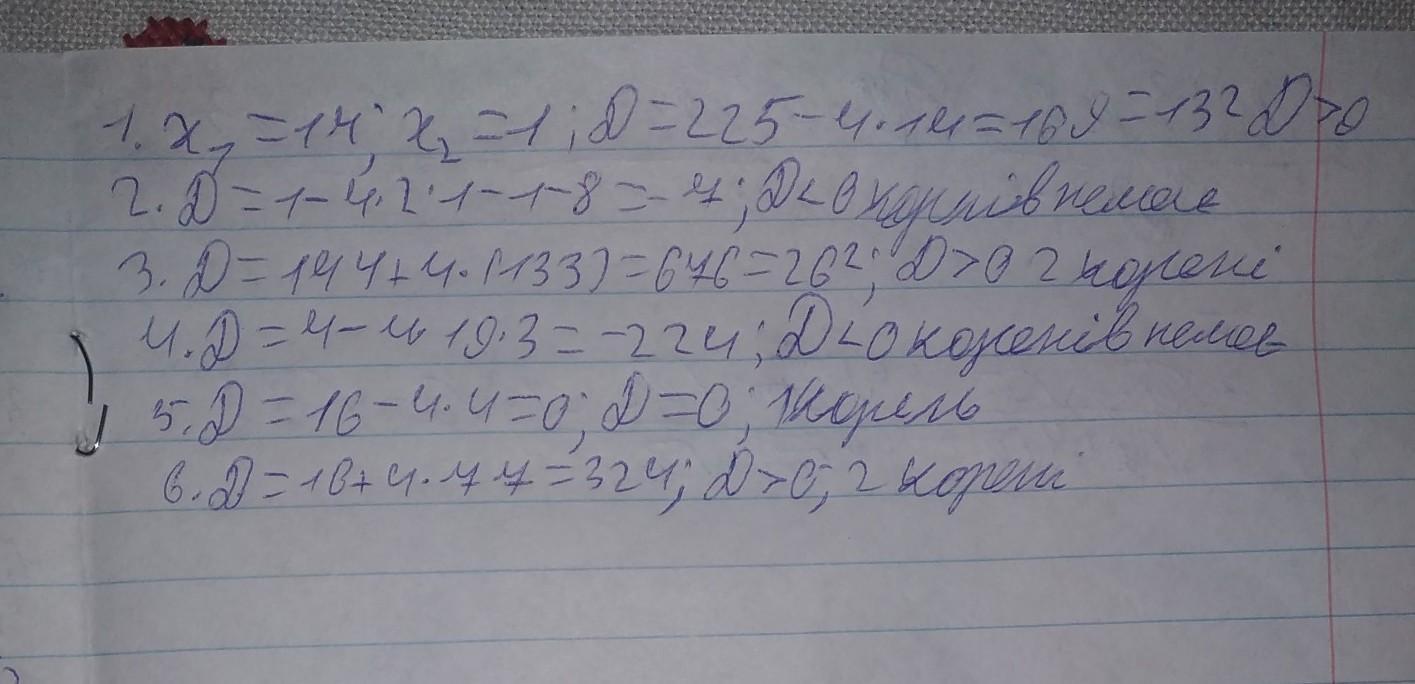 1. x₁ = 14; x₂ = 1; D = 225 - 4·14 = 169 = 13² D > 0
2. D = 1 - 4·2·1 - 1 - 8 = -7; D < 0 коренів немає
3. D = 144 + 4·(133) = 676 = 26²; D > 0 2 корені
4. D = 4 - 4·19·3 = -224; D < 0 коренів немає
5. D = 16 - 4·4 = 0; D = 0; 1 корень
6. D = 16 + 4·77 = 324; D > 0; 2 корені